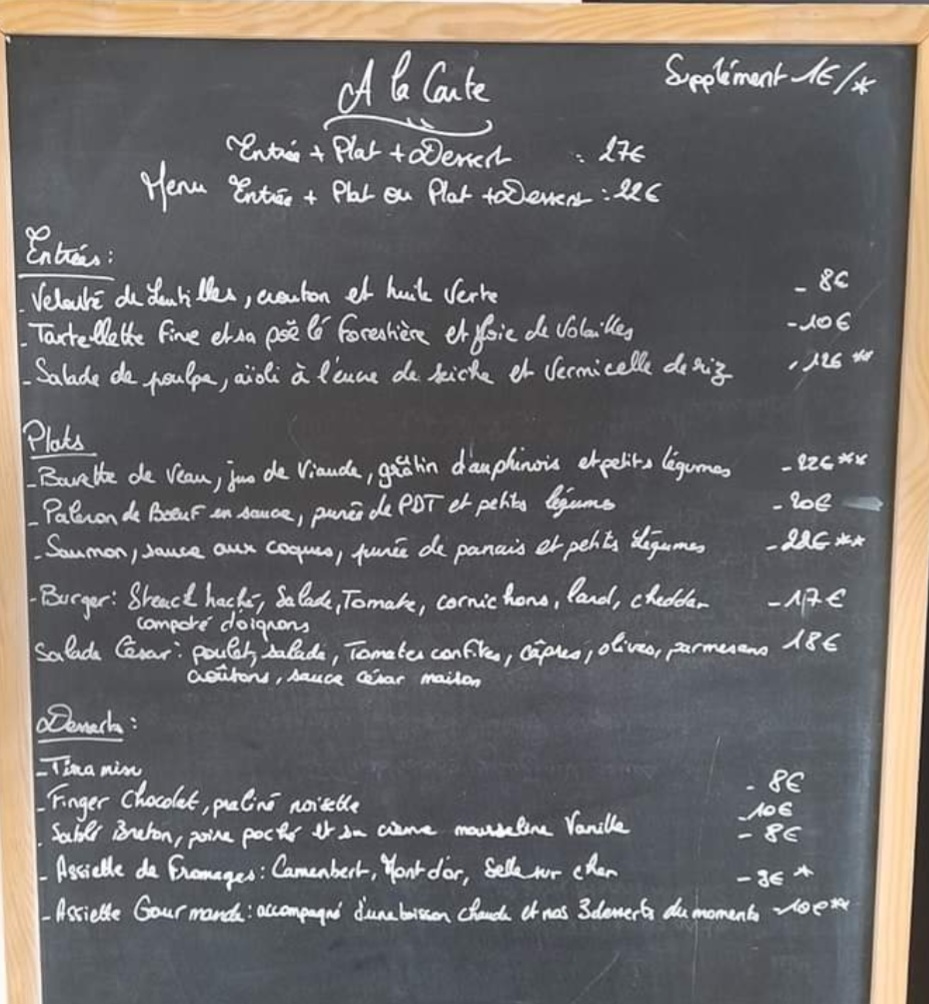 A la Carte
Supplément 1€/*
Entrée + Plat + Dessert : 27€
Menu Entrée + Plat ou Plat + Dessert : 22€
Entrées :
- Velouté de Lentilles, crouton et huile verte - 8€
- Tartellette Fine et sa poëlé Forestière et foie de Volailles - 10€
- Salade de poulpe, aïoli à l'encre de seiche et vermicelle de riz - 12€ **
Plats
- Bavette de Veau, jus de Viande, grâtin dauphinois et petits légumes - 22€ **
- Paleron de Boeuf en sauce, purée de PDT et petits légumes - 20€
- Saumon, sauce aux coques, purée de panais et petits légumes - 22€ **
- Burger : Steack haché, Salade, Tomate, cornichons, lard, cheddar - 17€
compoté d'oignons
Salade César : poulet, salade, Tomates confites, câpres, olives, parmesans 18€
croûtons, sauce césar maison
Desserts :
- Tiramisu - 8€
- Finger Chocolat, praliné noisette 10€
- Sablé Breton, poire poché et sa crème mousseline Vanille - 8€
- Assiette de Fromages : Camenbert, Mont d'or, Selle sur cher - 9€ *
- Assiette Gourmande : accompagné d'une boisson chaude et nos 3 desserts du moments - 10€ **